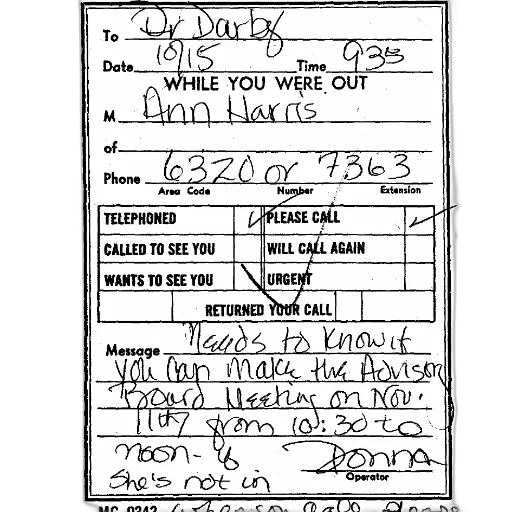 To Dr Darby
Date 10/15 Time 935
WHILE YOU WERE OUT
M Ann Harris
of
Phone 6320 or 7363
Area Code Number Extension
TELEPHONED PLEASE CALL
CALLED TO SEE YOU WILL CALL AGAIN
WANTS TO SEE YOU URGENT
RETURNED YOUR CALL
Message Needs to know if
you can make the Advisory
Board Meeting on Nov.
11th from 10:30 to
noon - if Donna
Operator
She's not in